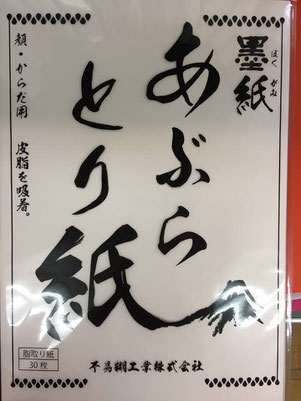 墨紙
ぼくがみ
あぶら
とり紙
顔・からだ用
皮脂を吸着。
脂取り紙
30枚
不易糊工業株式会社